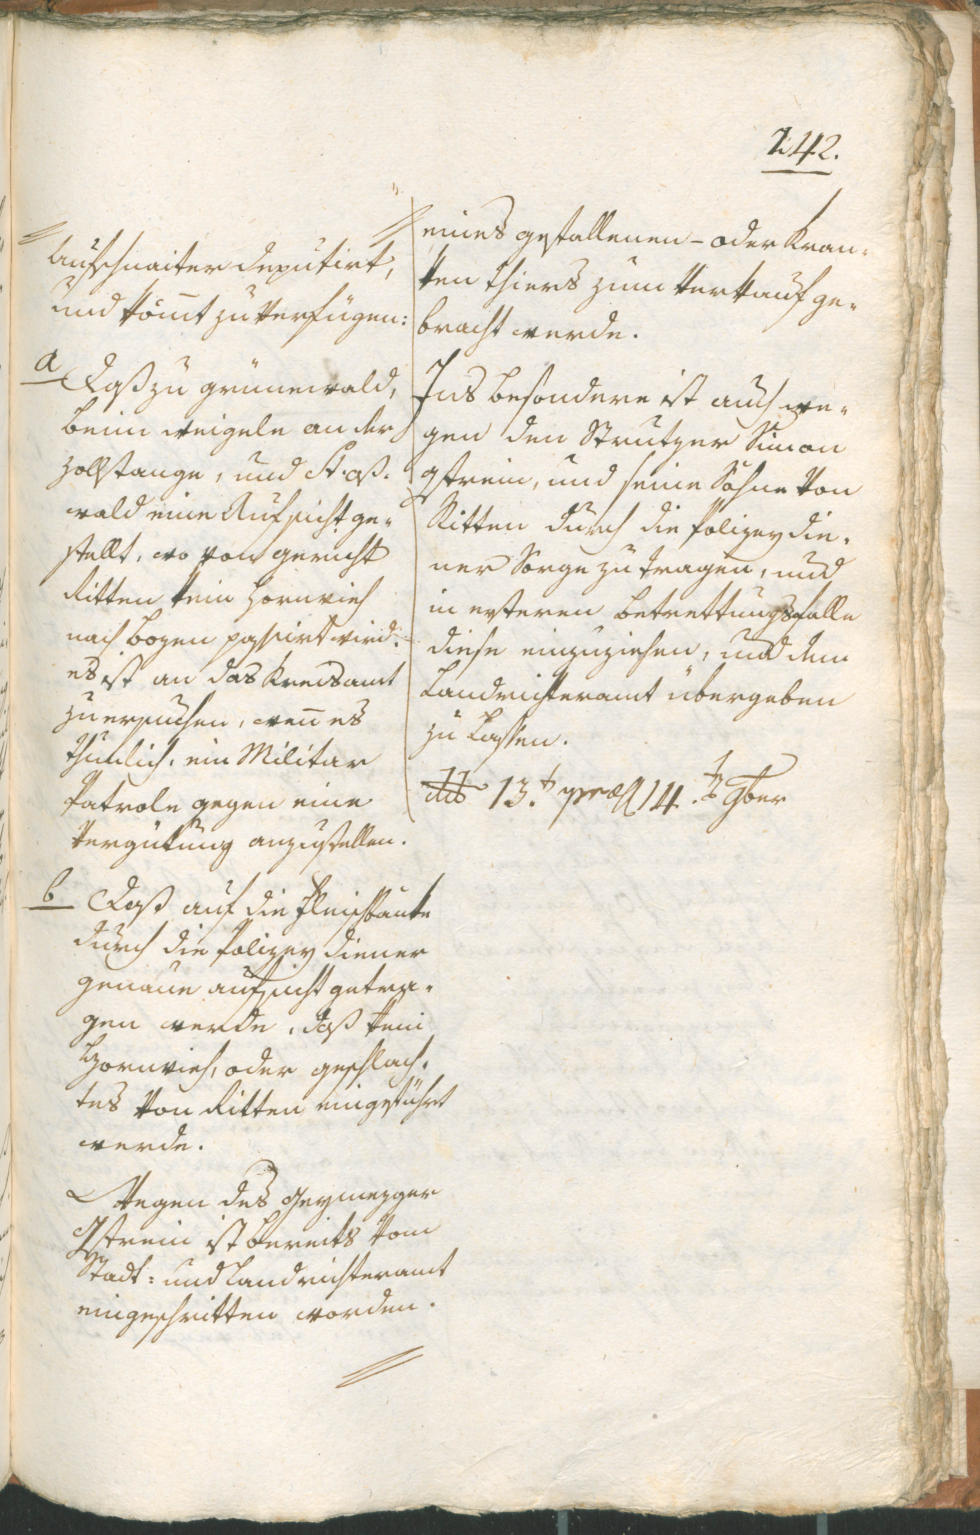 142.
Aufschnaiter deputirt,
und kömt zu verfügen:
a
Daß zu grünewald,
beim weigele an der
Zollstange, und
wald eine Aufsicht ge-
stellt, wo vom gericht
Ritten kein Hornvieh
nach bozen passirt wird.
es ist an das Kreisamt
zu ersuchen, wen̄ es
thunlich, ein Militar
Patrole gegen eine
Vergütung anzustellen.
b
Daß auf die Fleischbänke
durch die Polizey diener
genaue aufsicht getra-
gen werde, daß kein
Hornvieh, oder geschlach-
tes von Ritten eingeführt
werde.
Wegen des Geymezger
Gstrein ist bereits vom
Stadt- und Landrichteramt
eingeschritten worden.
eines gefallenen- oder Kran-
ken Thiers zum Verkauf ge-
bracht werde.
Ins besondere ist auch we-
gen den Strutzer Simon
gstrein, und seine Söhne von
Ritten durch die Polizey die-
ner Sorge zu tragen, und
in ersteren betrettungsfalle
diese einzuziehen, und dem
Landrichteramt übergeben
zu lassen.
13.t 14.t 9ber